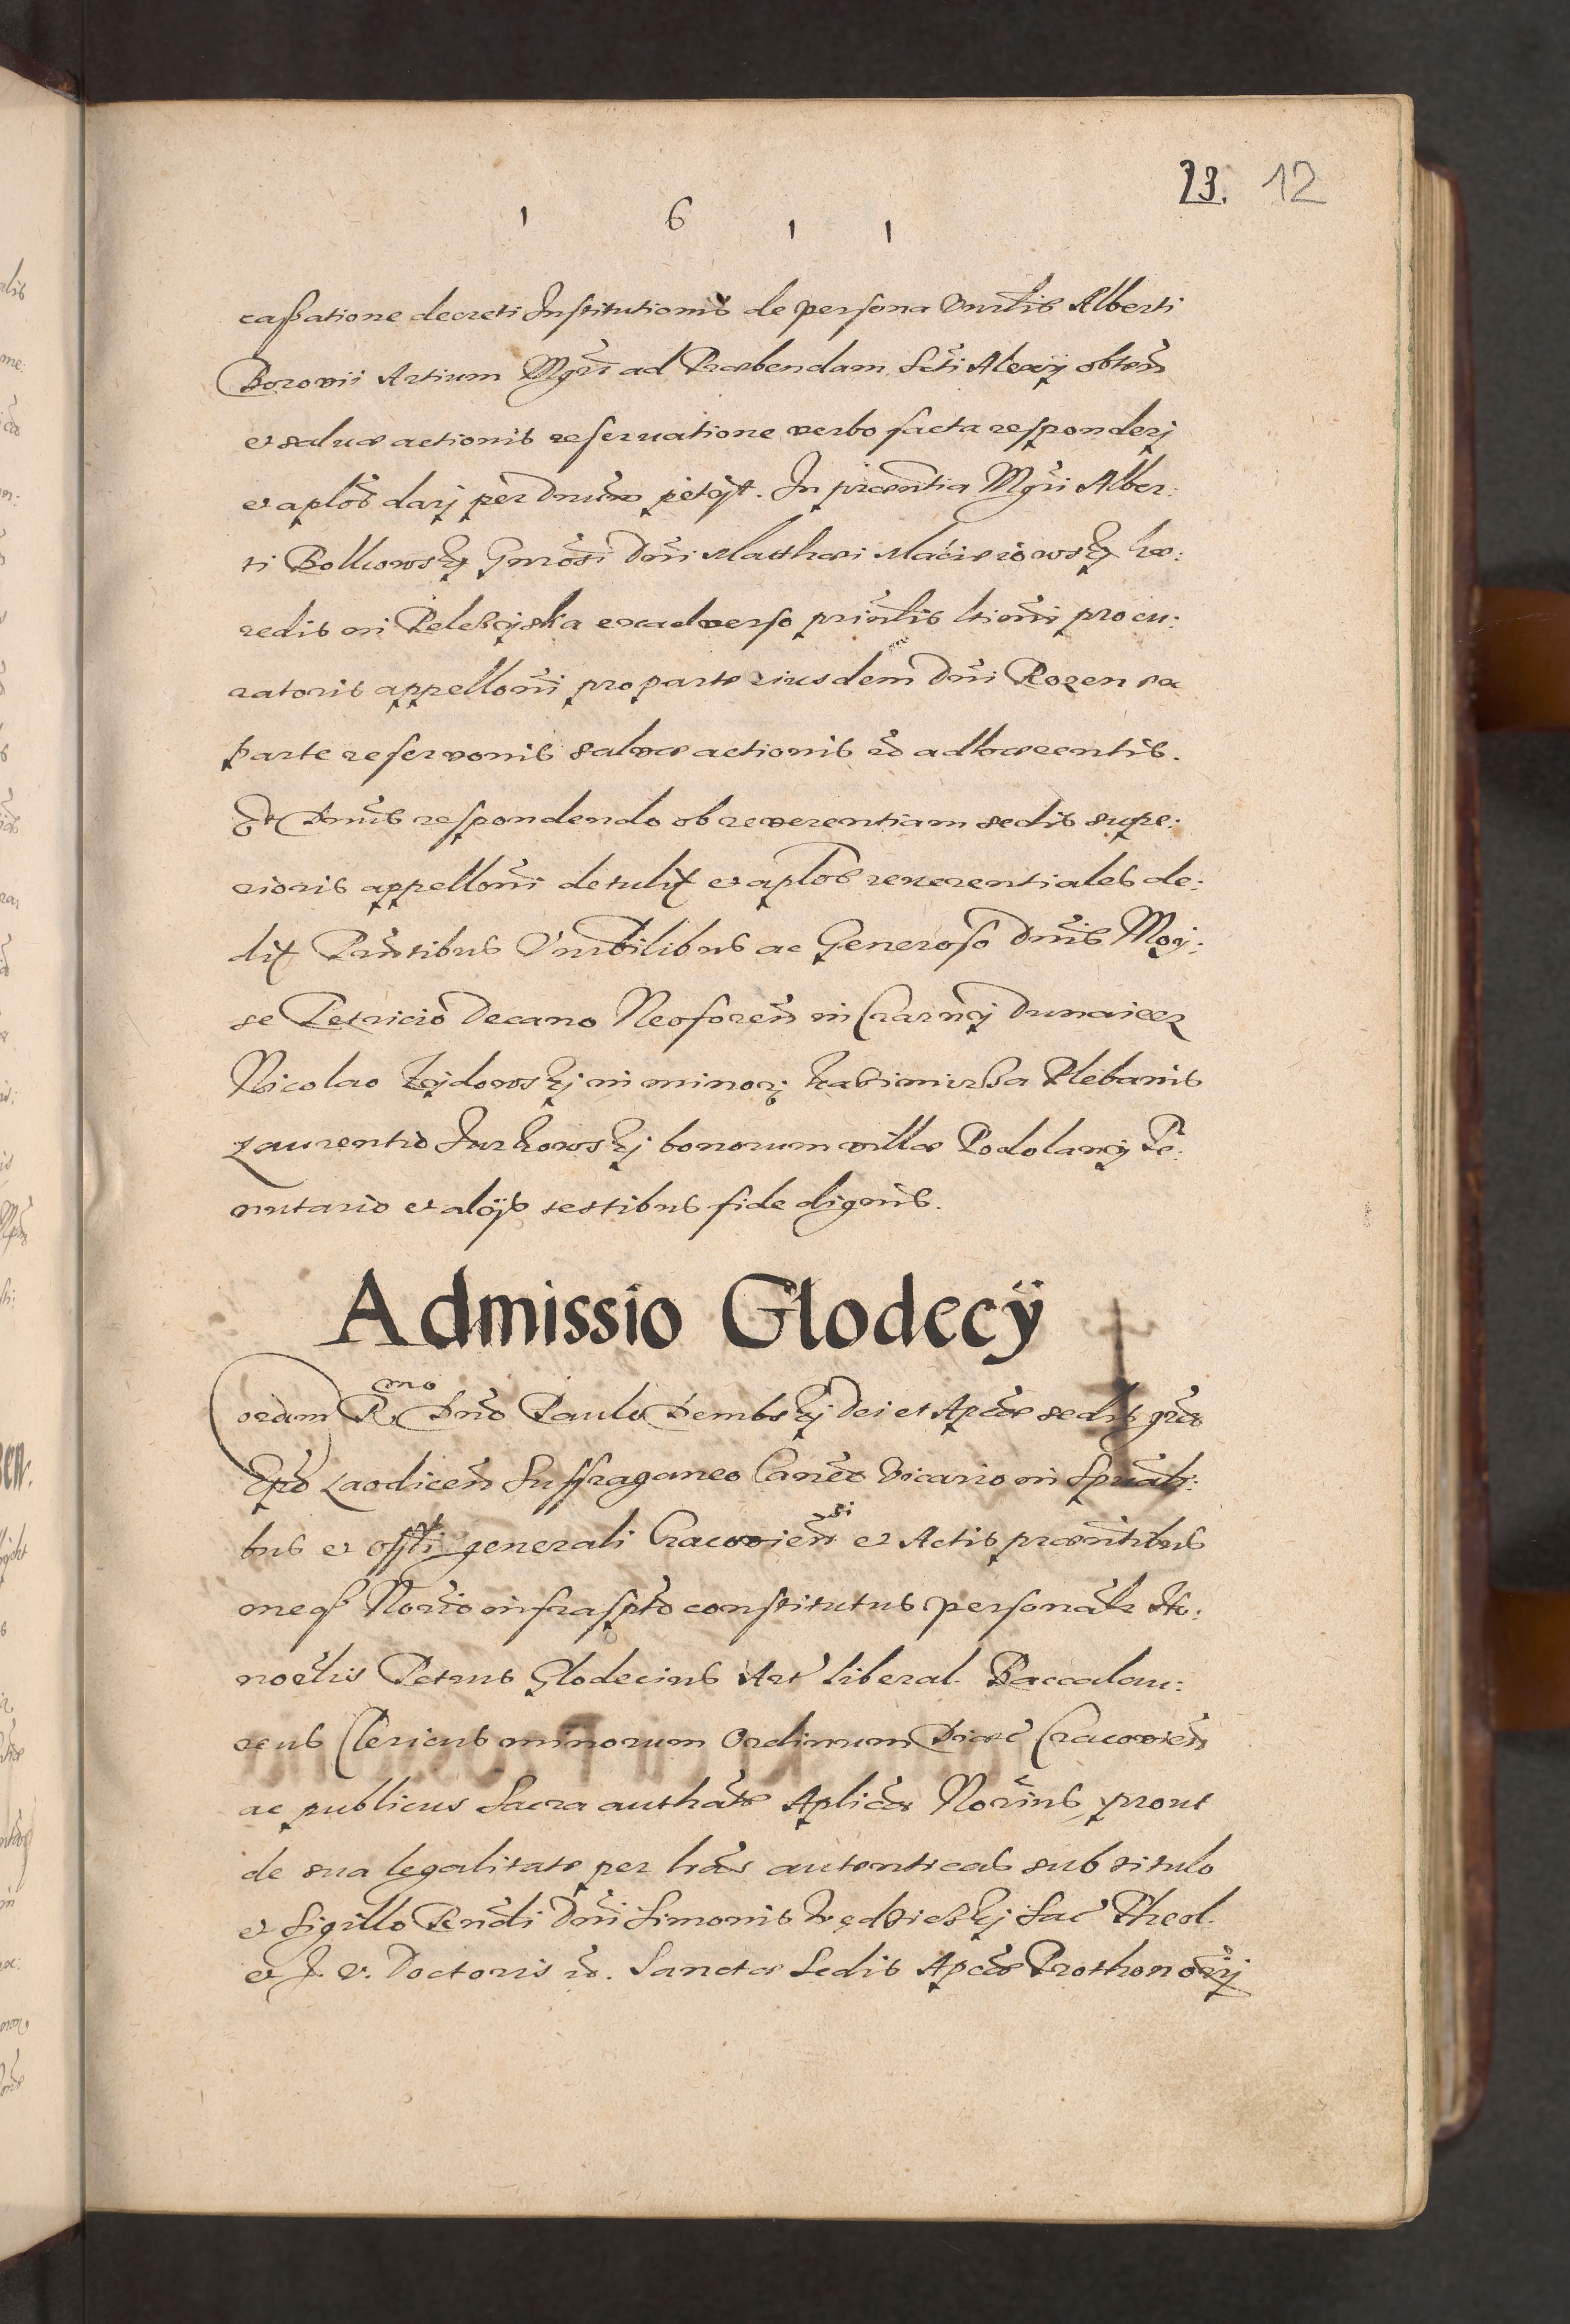 23. 12
1 6 1 1
cassatione decreti Institutionis de persona Vnrlis Alberti
Borovii Artium Mgri ad Præbendam Scti Alexÿ obten
et saluæ actionis reseruatione verbo facta responderj
et aplos darj per Dnum petÿt. In præntia Mgri Alber:
ti Bolkowskj Gnrosi Dni Matthæi Macieiowskj hæ:
redis in Pelcziska ex adverso prinlis ltimi procu:
ratoris appelloni pro parte eiusdem Dni Rozen ea
parte reservonis salvæ actionis no adhærentis.
Et Dnus respondendo ob reverentiam sedis supe:
rioris appelloni detulit et aplos reuerentiales de:
dit Pntibus Vnrbilibus ac Generoso Dnis Moÿ:
se Petricio Decano Neoforen in Czarnÿ Dunaiecz
Nicolao Zÿdowskj in minorj Kasimirza Plebanis
Laurentio Jurkowskj bonorum villæ Podolanÿ Te:
nutario et alÿs testibus fide dignis.
Admissio Glodecÿ
Coram Rmo Dno Paulo Dembskj Dei et Apcæ sedis græ
Epo Laodicen Suffraganeo Caneo Vicario in Spualj:
bus et offti generali Cracoviensi et Actis præntibus
meqz Norio infraspto constitutus personalr Ho:
noelis Petrus Glodecius Art Liberal. Baccalau:
reus Clericus minorum Ordinum Diæc Cracovien
ac publicus Sacra authate Aplica Norius prout
de sua legalitate per lras autenticas sub titulo
et Sigillo Rndi Dni Simonis Kędzierskj Sac Theol.
et J. V. Doctoris no. Sanctæ Sedis Apcæ Prothonorij